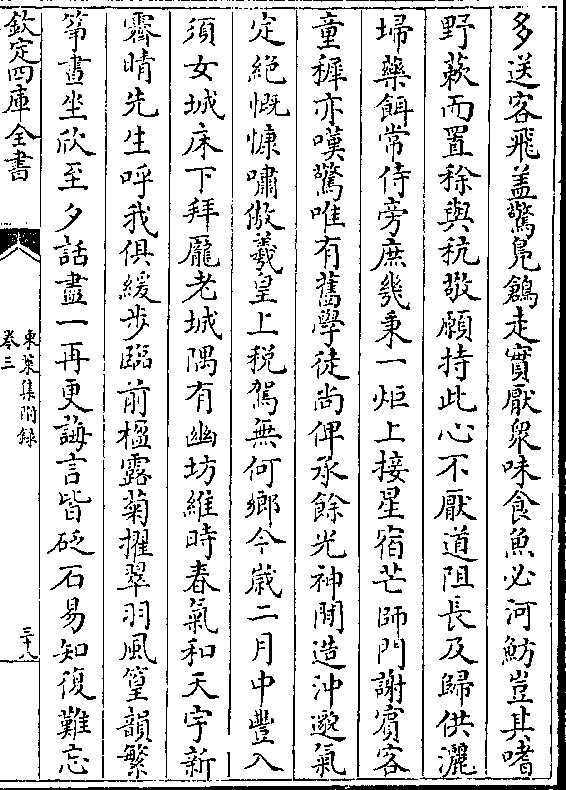 多送客飛盖驚鳬鶬走實厭衆味食魚必河魴豈其嗜
野蔌而置稌與秔敬願持此心不厭道阻長及歸供灑
埽藥餌常侍旁庶㡬秉一炬上接星宿芒師門謝賔客
童穉亦嘆驚唯有舊學徒尚俾承餘光神閒造沖邈氣
定絶慨慷嘯傲羲皇上税駕無何鄉今歲二月中豐入
須女城床下拜龎老城隅有幽坊維時春氣和天宇新
霽晴先生呼我俱緩步臨前楹露菊擢翠羽風篁韻繁
筝晝坐欣至夕話盡一再更誨言皆砭石易知復難忘
欽定四庫全書
東萊集附録
卷三
三十八